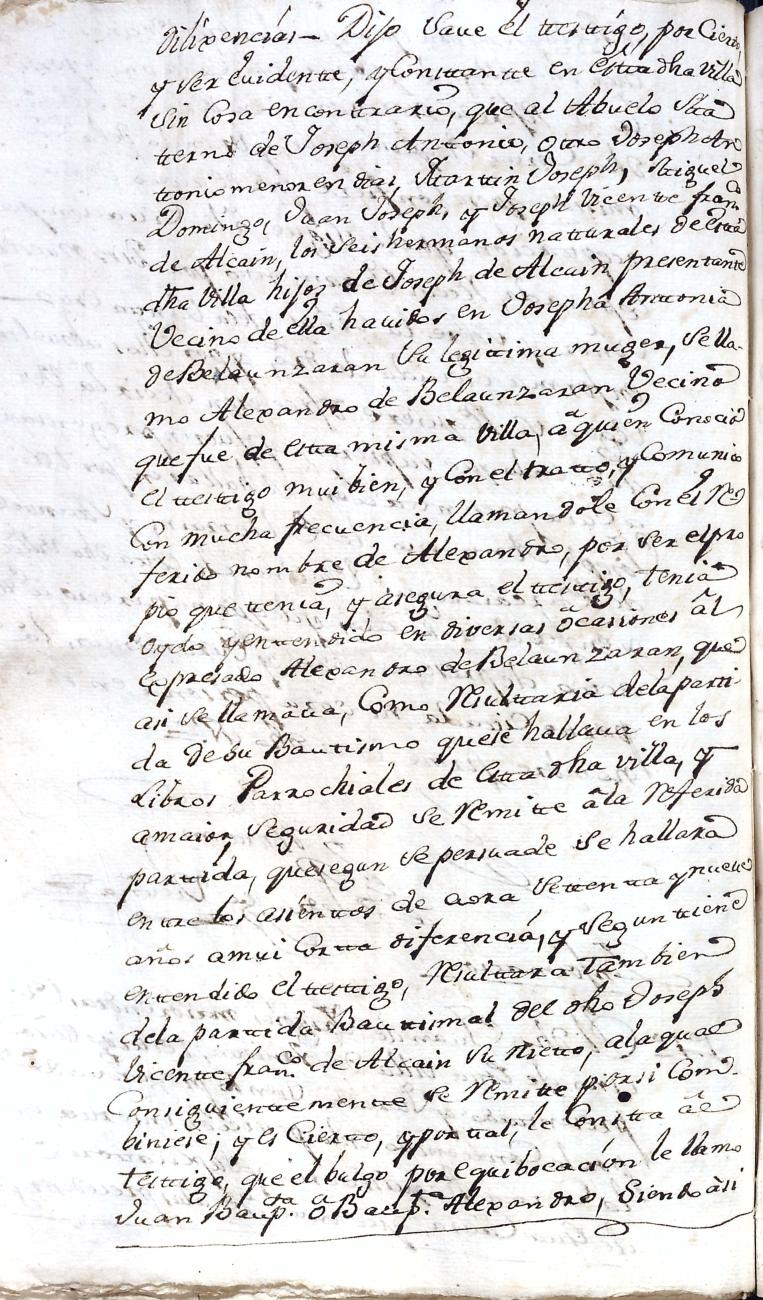 dilixencias = Dijo Save el ttesttigo, por Ciertto
y ser evidentte, y Consttantte en estta dha villa
Sin Cosa en conttrario, que al Abuelo Ma
tterno de Joseph Anttonio, ottro Joseph An
ttonio menor en dias, Marttin Joseph, Miguel
Domingo, Juan Joseph, y Joseph Vicentte fran.co
de Alcain, los seis hermanos natturales de estta
dha Villa hijos de Joseph de Alcain presentante
Vecino de ella havidos en Josepha Anttonia
de Belaunzaran su legittima muger, se lla-
mo Alexandro de Belaunzaran Vecino
que fue de estta misma Villa, a quien Conocio
el ttesttigo mui bien, y Con el tratto, y Comunico
Con mucha frecuencia, llamandole Con el Re
ferido nombre de Alexandro, por ser el pro
pio que ttenia, y asegura el ttesttigo, tenia
oydo y enttendido en diversas ocasiones al
expresado Alexandro de Belaunzaran, que
asi se llamava, Como Resulttaria de la partti-
da de su Bauttismo que se hallava en los
Libros Parrochiales de estta dha villa, y
a maior seguridad se Remitte a la Referida
parttida, que segun se persuade se hallara
enttre los asienttos de aora settentta y nueve
años a mui Cortta diferencia, y segun ttiene
enttendido el ttesttigo, Resulttara tambien
de la parttida Bauttismal del dho Joseph
Vicentte fran.co de Alcain su Nietto, a la qual
Consiguienttementte se Remitte por si Com-
biniese; y es Ciertto, y por tal, le Constta al
testtigo, que el bulgo por equibocacion le llamo
Juan Baup.ta o Baup.ta Alexandro, siendo asi